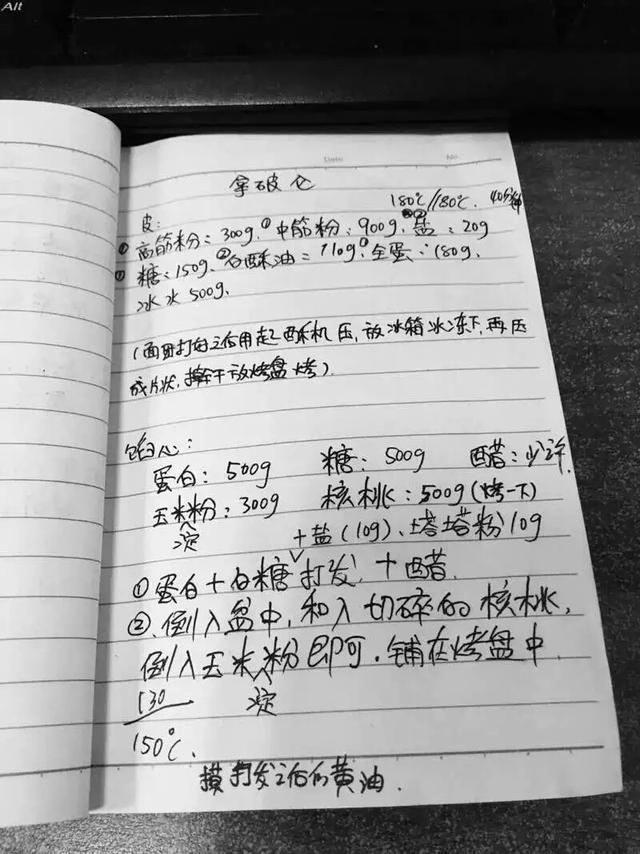 Alt
Date
No.
拿破仑
180℃/180℃. 40分钟
皮:
①高筋粉:300g.①中筋粉:900g.②盐:20g
①糖:150g.②白酥油:110g.①全蛋:180g.
冰水500g.
(面团打好之后用起酥机压,放冰箱冰冻下,再压
成片状,擀干放烤盘烤)
馅心:
蛋白:500g 糖:500g 醋:少许.
玉米粉:300g 核桃:500g(烤一下)
淀 +盐(10g)、塔塔粉10g
①蛋白+白糖打发,+醋.
②.倒入盆中,和入切碎的核桃,
倒入玉米粉即可.铺在烤盘中
130 淀
150℃.
摸打发之后的黄油.